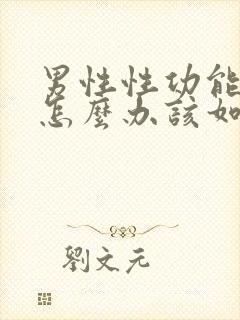 男性性功能
怎麼办該如
劉文元